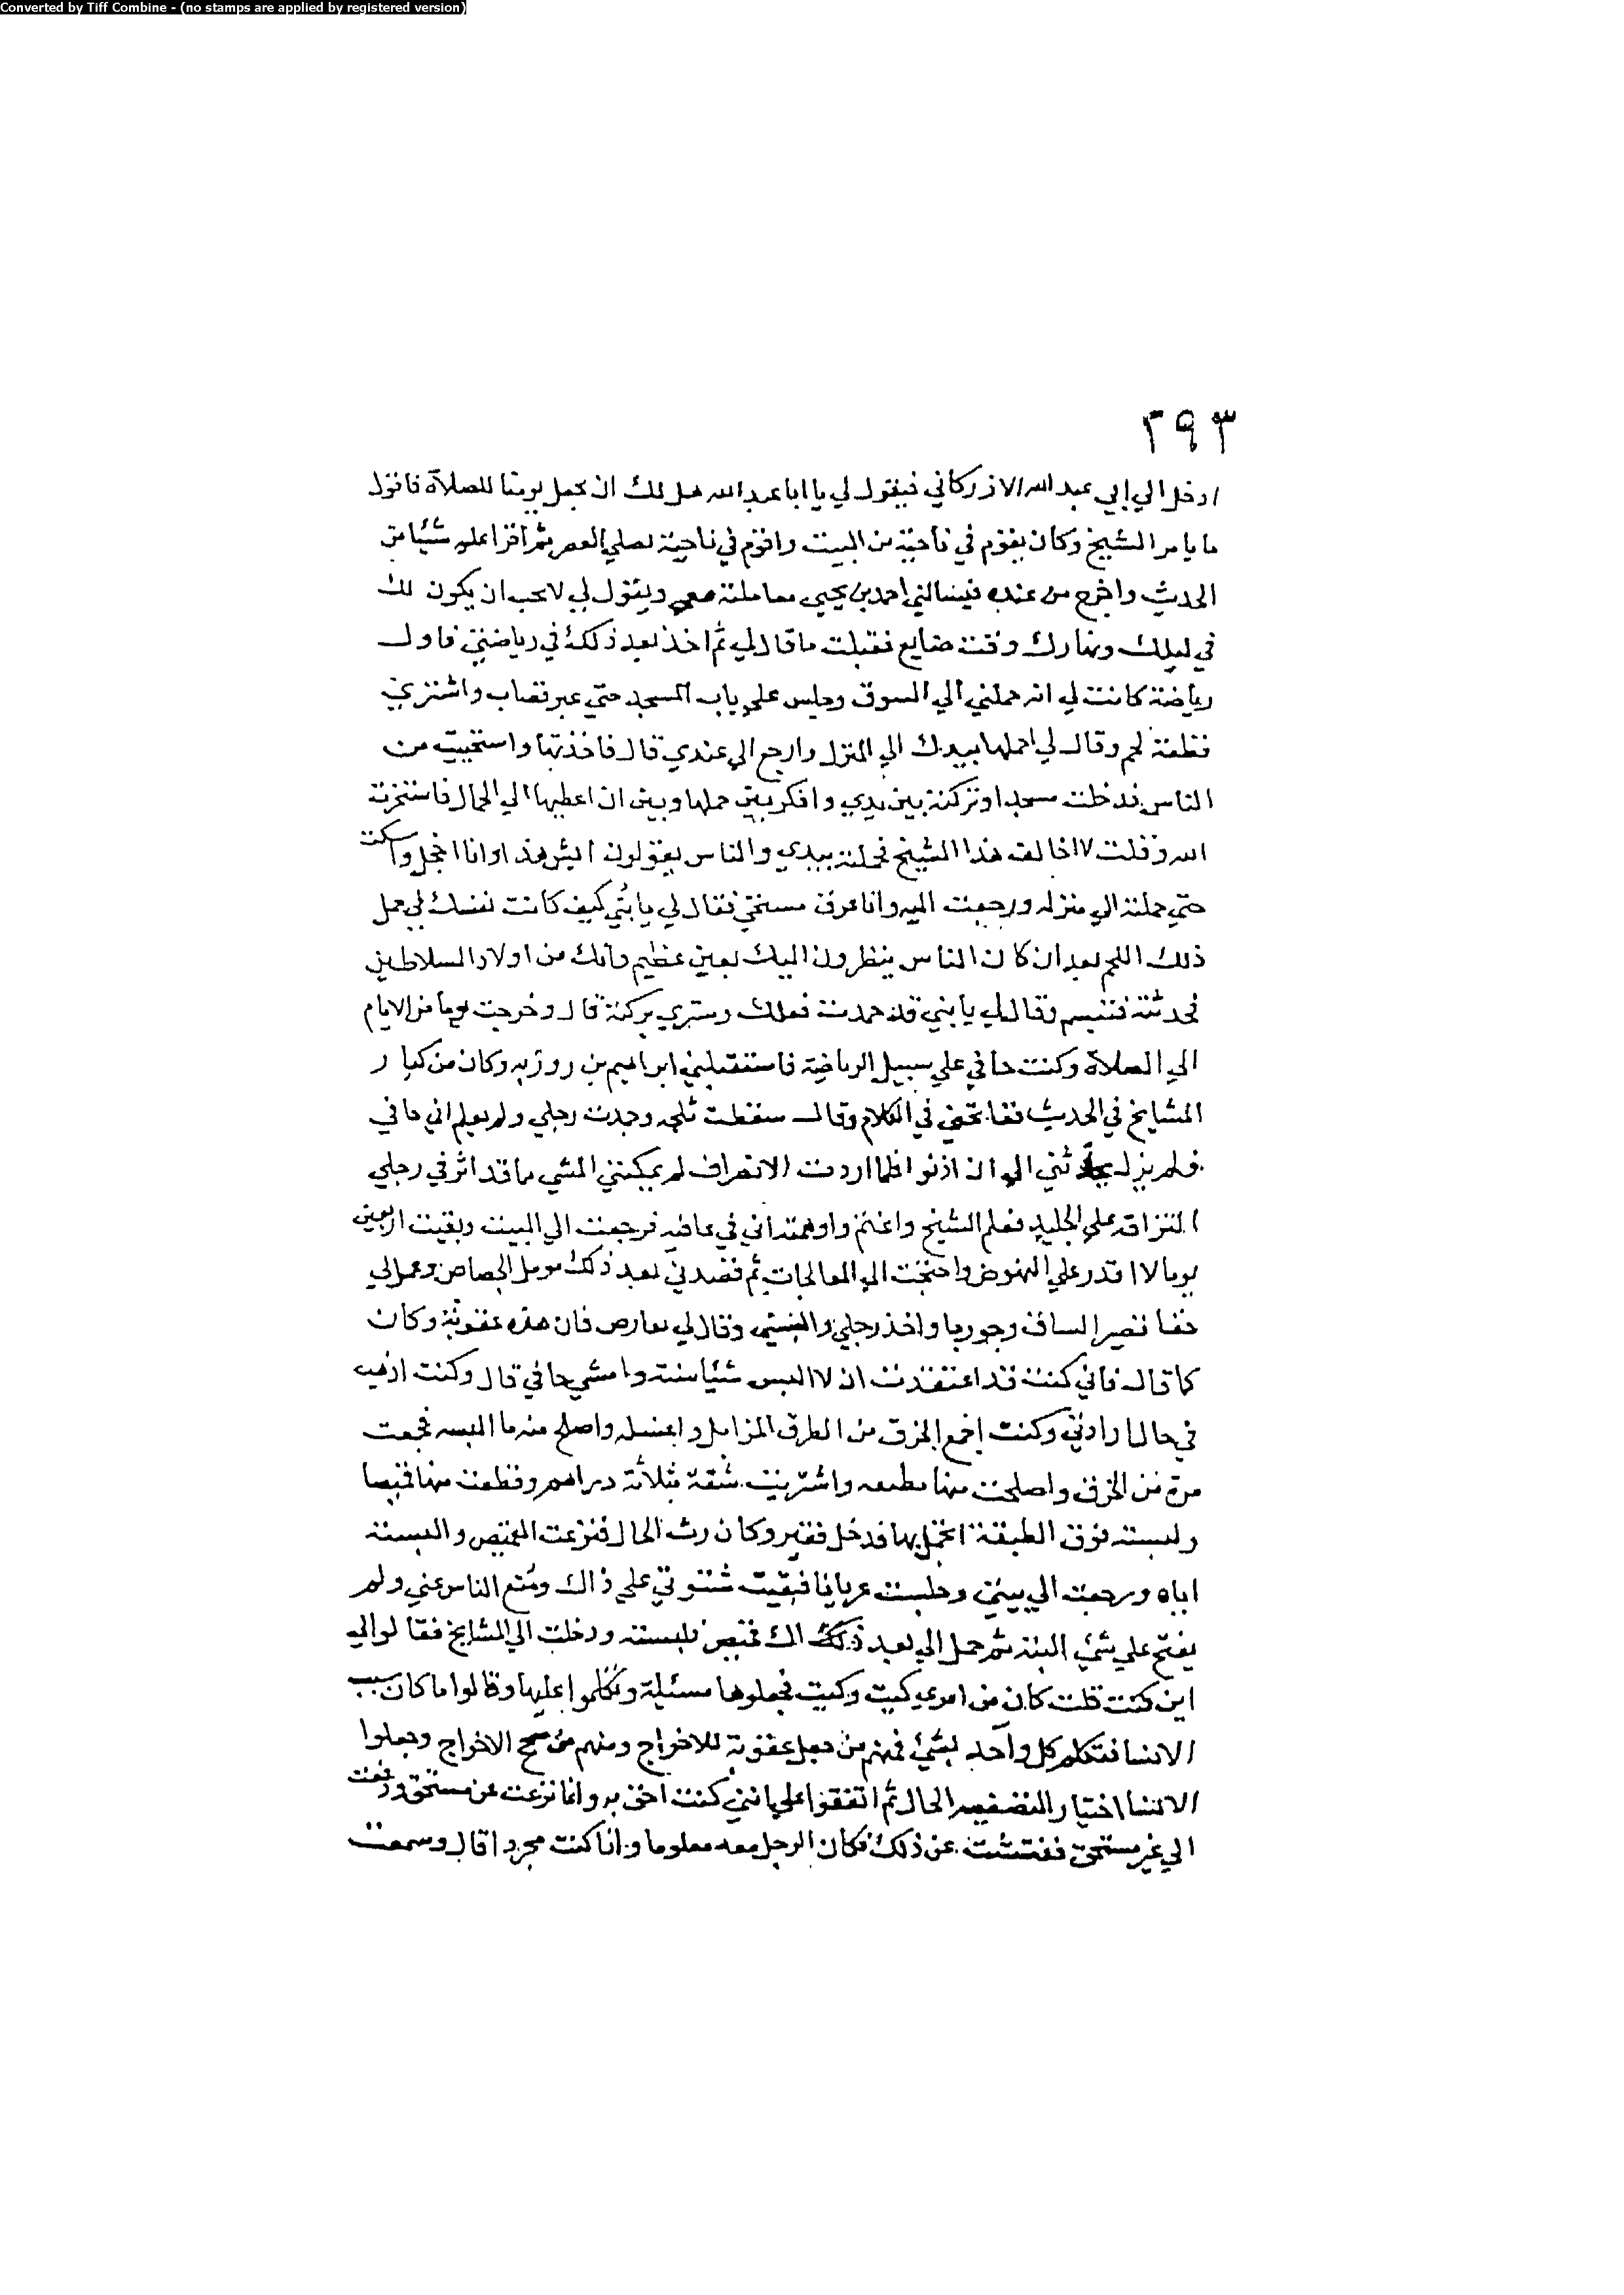 Converted by Tiff Combine - (no stamps are applied by registered version)
٢٩٣
ادخل الي ابي عبد الله الازركاني فيقول لي يا ابا عبد الله هل لك ان نجعل يومنا للصلاة فاقول
ما يامر الشيخ وكان يقوم في ناحية من البيت واقوم في ناحية نصلي العصر ثم اقرا عليه شئيا من
الحديث واخرج من عنده فيسالني احمد بن يحيي معاملته معي ويقول لي لا يحب ان يكون لك
في ليلك ونهارك وقت ضايع فقبلت ما قال لي ثم اخذ بعد ذلك في رياضتي فاول
رياضة كانت لي انه حملني الي السوق وجلس علي باب المسجد حتي عبر قصاب واشتري
قطعة لحم وقال لي احملها بيدك الي المنزل وارجع الي عندي قال فاخذتها واستحييت من
الناس فدخلت مسجدا وتركته بين يدي وافكر بين حملها وبين ان اعطيها الي الحمال فاستخرت
الله وقلت لا اخالف هذا الشيخ فحملته بيدي والناس يقولون ايش هذا وانا اخجل واسكت
حتي حملته الي منزله ورجعت اليه وانا عرق مستحي فقال لي يا بني كيف كانت نفسك في حمل
ذلك اللحم بعد ان كان الناس ينظرون اليك بعين عظيم وانك من اولاد السلاطين
فحدثته فتبسم وقال لي يا بني قد حمدت فعلك وستري بركته قال وخرجت يوما من الايام
الي الصلاة وكنت حافي علي سبيل الرياضة فاستقبلني ابراهيم بن روزبه وكان من كبار
المشايخ في الحديث في الكلام وقال سقطت ثلجه وجمدت رجلي ولم يعلم اني حافي
فلم يزل يحدثني الي ان اذنوا فلما اردت الانصراف لم يمكنني المشي ما قد اثر في رجلي
التزاقه علي الجليد فعلم الشيخ واغتم واوهمته اني في عافيه فرجعت الي البيت وبقيت اربعين
يوما لا اقدر علي النهوض واحتجت الي المعالجات ثم قصدني بعد ذلك مومل الجصاص وعمل لي
خفا قصير الساق وجوربا واخذ رجلي والبستي وقال لي فان هذه عقوبة وكان
كما قال فاني كنت قد اعتقدت ان لا البس شئيا سنة وامشي حافي قال وكنت اذهب
في حال ارادتي وكنت اجمع الخرق من الطرق المزابل واغسله واصلح منه ما البسه فجمعت
مرة من الخرق واصلحت منها واشتريت شقة بثلاثة دراهم وقطعت منها قميصا
ولبسته فوق الطبقة اتجمل بها فدخل فقير وكان رث الحال فنزعت القميص والبسته
اياه ورجعت الي بيتي وجلست عريانا فبقيت شتوتي علي ذاك ومنع الناس عني ولم
يفتح علي بشئ البتة ثم حمل الي بعد ذلك قميص فلبسته ودخلت الي المشايخ فقالوا لي
اين كنت قلت كان من امري كيت وكيت فجعلوها مسئلة وتكلموا عليها وقالوا ما كان سبب
فتكلم كل واحد بشئ فمنهم من جعل عقوبة للاخراج ومنهم من صحح الاخراج وجعلوا
اختيار الحال ثم اتفقوا علي انني كنت احق به وانما نزعت عن مستحق ودفعت
الي غير مستحق ففتشت عن ذلك فكان الرجل معه معلوما وانا كنت مجردا قال وسمعت